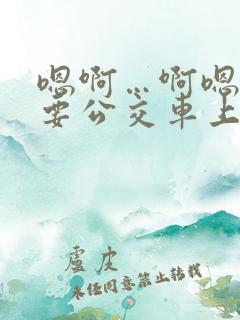 嗯啊…啊嗯
要公交车上
盧皮
未经同意禁止转载